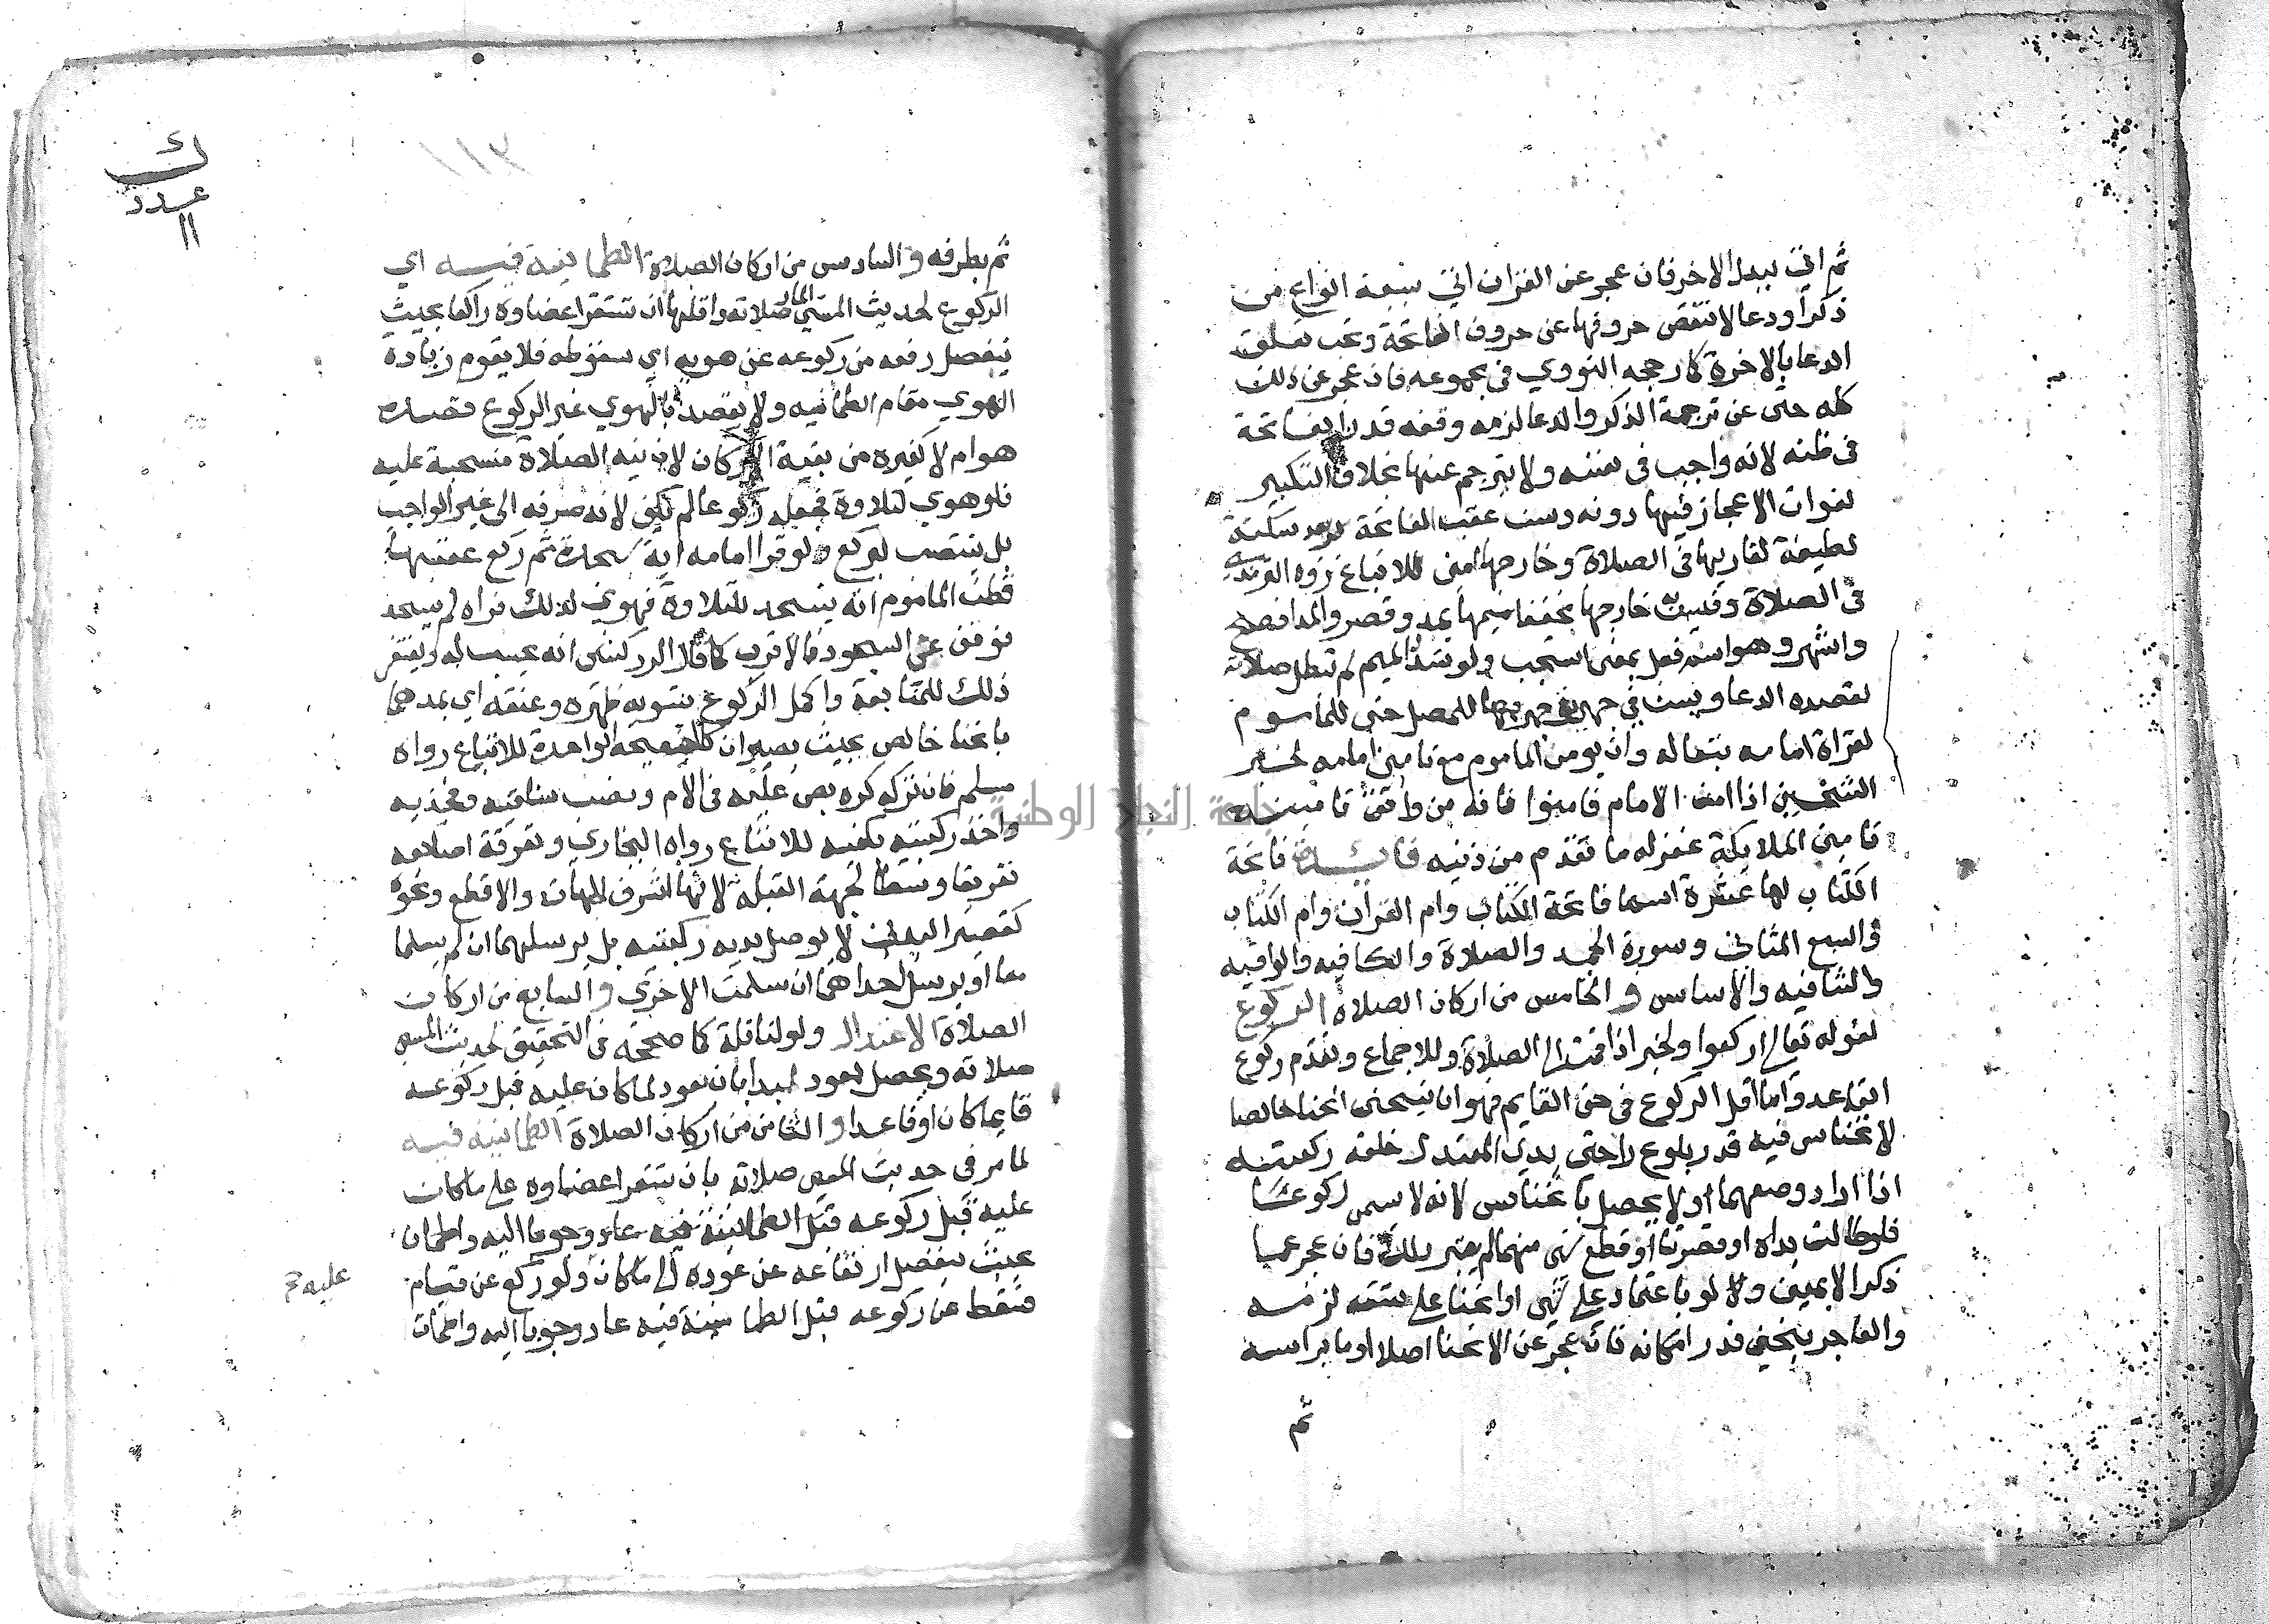 ثم اتى ببدل الاخر فان عجز عن القران اتى بسبعة انواع من
ذكر او دعا لا تنقص حروفها عن حروف الفاتحة ويجب تعلق
الدعا بالاخرة كما رجحه النووي في مجموعه فان عجز عن ذلك
كله حتى عن ترجمة الذكر والدعا لزمه وقفه قدر الفاتحة
في ظنه لانه واجب في نفسه ولا يترجم عنها بخلاف التكبير
لفوات الاعجاز فيها دونه وسن عقب الفاتحة بعد سكتة
لطيفة لقاريها في الصلاة وخارجها امين للاتباع رواه الترمذي
في الصلاة وقيس خارجها مخففا ميمها بمد وقصر والمد افصح
واشهر وهو اسم فعل بمعنى استجب ولو شدد الميم لم تبطل صلاته
لقصده الدعا ويسن في جهرية جهر بها للمصلي حتى للماموم
لقراة امامه تبعا له وان يومن الماموم مع تامين امامه لخبر
الشيخين اذا امن الامام فامنوا فانه من وافق تامينه
تامين الملايكة غفر له ما تقدم من ذنبه فائدة فاتحة
الكتاب لها عشرة اسما فاتحة الكتاب وام القران وام الكتاب
والسبع المثاني وسورة الحمد والصلاة والكافيه والواقيه
والشافيه والاساس و الخامس من اركان الصلاة الركوع
لقوله تعالى اركعوا ولخبر اذا قمت الى الصلاة وللاجماع وتقدم ركوع
القاعد واما اقل الركوع في حق القايم فهو ان ينحنى انحنا خالصا
لا انخناس فيه قدر بلوغ راحتى يدي المعتدل خلقه ركبتيه
اذا اراد وضعهما ولا يحصل بانخناس لانه لا يسمى ركوعا
فلو طالت يداه او قصرتا او قطع شي منهما لم يعتبر ذلك فان عجز عما
ذكر الا بمعين ولو باعتماد على شي او انحنا على شقه لزمه
والعاجز ينحني قدر امكانه فان عجز عن الانحنا اصلا اوما براسه
ثم
ك
عدد
١١
١١٣
ثم بطرفه و السادس من اركان الصلاة الطمانينة فيه اي
الركوع لحديث المسي صلاته المار واقلها ان تستقر اعضاوه راكعا بحيث
ينفصل رفعه من ركوعه عن هويه اي سقوطه فلا يقوم زيادة
الهوي مقام الطمانينه ولا يقصد بالهوي غير الركوع قصده
هو ام لا كغيره من بقية الاركان لان نية الصلاة منسحبة عليه
فلو هوي لتلاوة فجعله ركوعا لم يكف لانه صرفه الى غير الواجب
بل ينتصب ليركع ولو قرا امامه اية سجدة ثم ركع عقبها
فظن الماموم انه يسجد للتلاوة فهوى لذلك فراه لم يسجد
فوقف عن السجود فالاقرب كما قال الزركشي انه يحسب له ويغتفر
ذلك للمتابعة واكمل الركوع تسوية ظهره وعنقه اي يمدهما
بانحنا خالص بحيث يصيران كالصفيحه الواحدة للاتباع رواه
مسلم فان تركه كره نص عليه في الام ونصب ساقيه وفخذيه
واخذ ركبتيه بكفيه للاتباع رواه البخاري وتفرقة اصابعه
تفريقا وسطا لجهة القبلة لانها اشرف الجهات والاقطع ونحوه
كقصير اليدين لا يوصل يديه ركبتيه بل يرسلهما ان لم يسلما
معا او يرسل احداهما ان سلمت الاخرى و السابع من اركان
الصلاة الاعتدال ولو لنافلة كما صححه في التحقيق لحديث المسي
صلاته ويحصل بعود لبدء بان يعود لما كان عليه قبل ركوعه
قايما كان او قاعدا و الثامن من اركان الصلاة الطمانينه فيه
لما مر في حديث المسي صلاته بان تستقر اعضاوه على ما كان
عليه قبل ركوعه قبل الطمانينة فيه عاد وجوبا اليه واطمان
بحيث ينفصل ارتفاعه عن عوده الى ما كان ولو ركع عن قيام
عليه
فسقط عن ركوعه قبل الطمانينة فيه عاد وجوبا اليه واطمان
جامعة النجاح الوطنية